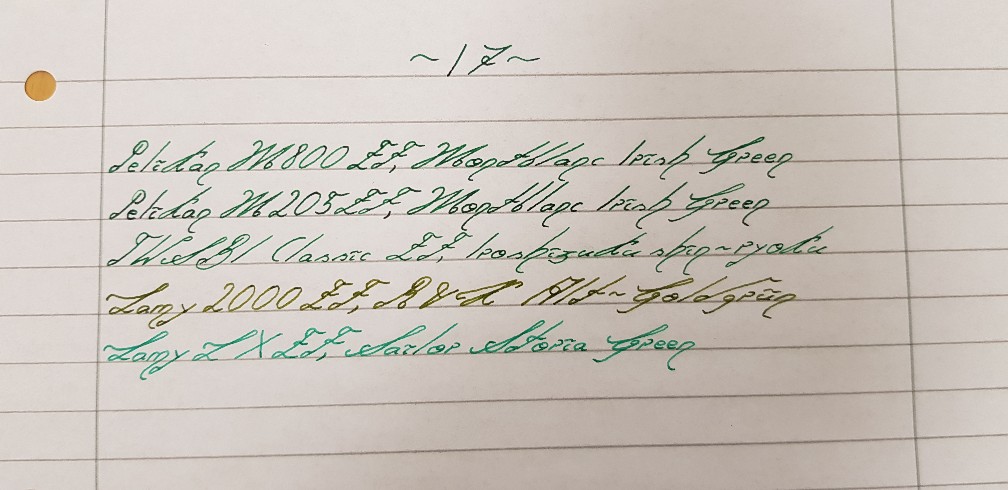 ~17~
Pelikan M800 EF, Montblanc Irish Green
Pelikan M205 EF, Montblanc Irish Green
TWSBI Classic EF, Iroshizuku shin-ryoku
Lamy 2000 EF, R&K Alt-Goldgrün
Lamy LX EF, Sailor Storia Green